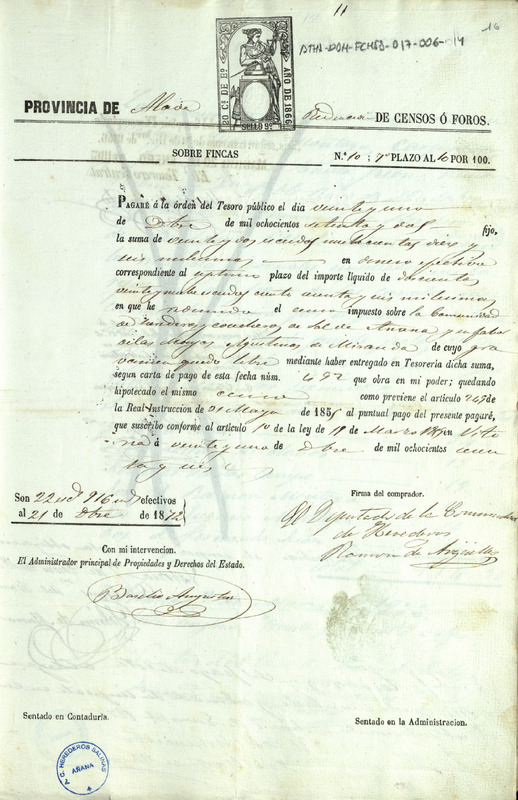 11
16
ATHA-DAH-FCMSD-017-006-14
20 Cs. DE Eº
AÑO DE 1866
SELLO 9º
PROVINCIA DE Alava Redencion DE CENSOS Ó FOROS.
SOBRE FINCAS N.º 10 ; 7º PLAZO AL 10 POR 100.
PAGARÉ á la órden del Tesoro público el dia veinte y uno
de Dbre de mil ochocientos setenta y dos fijo,
la suma de veinte y dos escudos novecientos diez y
seis milesimas en dinero efectivo
correspondiente al septimo plazo del importe líquido de doscientos
veinte y nueve escudos ciento sesenta y seis milesimas
en que he redimido el censo impuesto sobre la Comunidad
de Herederos y cosecheros de Sal de Añana y a favor
de las Monjas Agustinas de Miranda de cuyo gra
vamen quedo libre mediante haber entregado en Tesoreria dicha suma,
segun carta de pago de esta fecha núm. 492 que obra en mi poder; quedando
hipotecado el mismo censo como previene el artículo
la Real Instruccion de 31 Mayo de 1855 al puntual pago del presente pagaré,
que suscribo conforme al artículo 10 de la ley de 19 de Marzo en Vito
ria á veinte y uno de Dbre de mil ochocientos sesen
ta y seis
Son 22 esd 916 mil efectivos
al 21 de Dbre de 1872
Firma del comprador.
El Diputado de la Comunidad
de Herederos
Ramon de
Con mi intervencion.
El Administrador principal de Propiedades y Derechos del Estado.
Basilio Augustin
Sentado en Contaduría.
Sentado en la Administracion.
C. HEREDEROS SALINAS
AÑANA